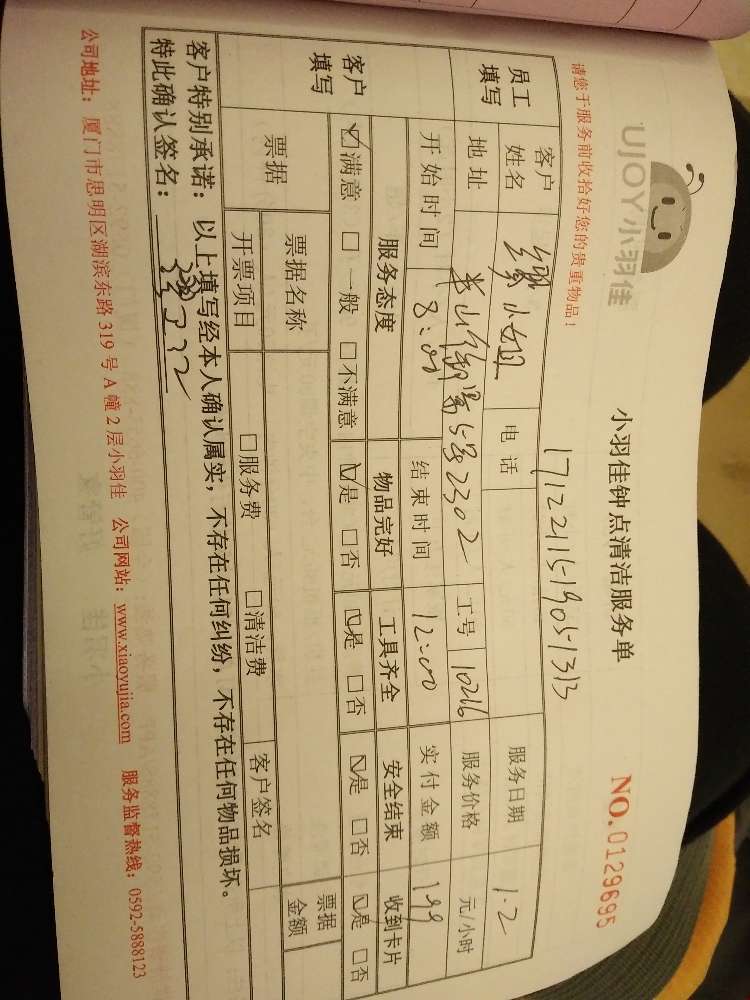 UJOY小羽佳
小羽佳钟点清洁服务单
NO. 0129695
请您于服务前收拾好您的贵重物品!
1712211519051313
员工填写
客户姓名 小姐 电话 服务日期 1.2
地址 半山御景5号2302 工号 10216 服务价格 元/小时
开始时间 8:00 结束时间 12:00 实付金额 199
客户填写
服务态度 物品完好 工具齐全 安全结束 收到卡片
☑满意 □一般 □不满意 ☑是 □否 ☑是 □否 ☑是 □否 ☑是 □否
票据 票据名称 票据金额
开票项目 □服务费 □清洁费 客户签名
客户特别承诺:以上填写经本人确认属实,不存在任何纠纷,不存在任何物品损坏。
特此确认签名:
公司地址:厦门市思明区湖滨东路 319 号 A 幢 2 层小羽佳 公司网站:www.xiaoyujia.com 服务监督热线:0592-5888123